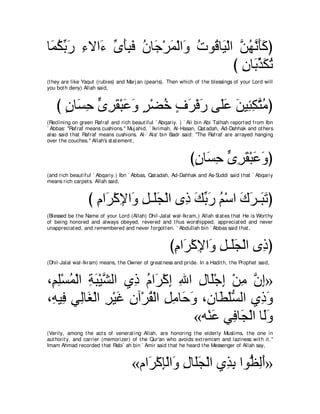 (كَأَنَّهُنَّ الْيَاقُوتُ وَالْمَرْجَانُ فَبِأَىِّ ءَالاءِ رَبِّكُمَا
تُكَذِّبَانِ )
(they are like Yaqut (rubies) and Marjan (pearls). Then which of the blessings of your Lord will you both deny) Allah said,
(مُتَّكِئِينَ عَلَى رَفْرَفٍ خُضْرٍ وَعَبْقَرِىٍّ حِسَانٍ )
(Reclining on green Rafraf and rich beautiful `Abqariy. ) `Ali bin Abi Talhah reported from Ibn `Abbas: "Rafraf means cushions." Mujahid, `Ikrimah, Al-Hasan, Qatadah, Ad-Dahhak and others also said that Rafraf means cushions. Al-`Ala' bin Badr said: "The Rafraf are arrayed hanging over the couches." Allah's statement,
(وَعَبْقَرِىٍّ حِسَانٍ)
(and rich beautiful `Abqariy.) Ibn `Abbas, Qatadah, Ad-Dahhak and As-Suddi said that `Abqariy means rich carpets. Allah said,
(تَبَـرَكَ اسْمُ رَبِّكَ ذِى الْجَلَـلِ وَالإِكْرَامِ )
(Blessed be the Name of your Lord (Allah) Dhil-Jalal wal-Ikram,) Allah states that He is Worthy of being honored and always obeyed, revered and thus worshipped, appreciated and never unappreciated, and remembered and never forgotten. `Abdullah bin `Abbas said that,
(ذِى الْجَلَـلِ وَالإِكْرَامِ)
(Dhil-Jalal wal-Ikram) means, the Owner of greatness and pride. In a Hadith, the Prophet said,
«إِنَّ مِنْ إِجْلَالِ اللهِ إِكْرَامُ ذِي الشَّيْبَةِ الْمُسْلِمِ،
وَذِي السُّلْطَانِ، وَحَامِلِ الْقُرْآنِ غَيْرِ الْغَالِي فِيهِ،
وَلَا الْجَافِي عَنْه»
(Verily, among the acts of venerating Allah, are honoring the elderly Muslims, the one in authority, and carrier (memorizer) of the Qur'an who avoids extremism and laziness with it." Imam Ahmad recorded that Rabi`ah bin `Amir said that he heard the Messenger of Allah say,
«أَلِظُّوا بِذِي الْجَلَالِ وَالْإِكْرَام»